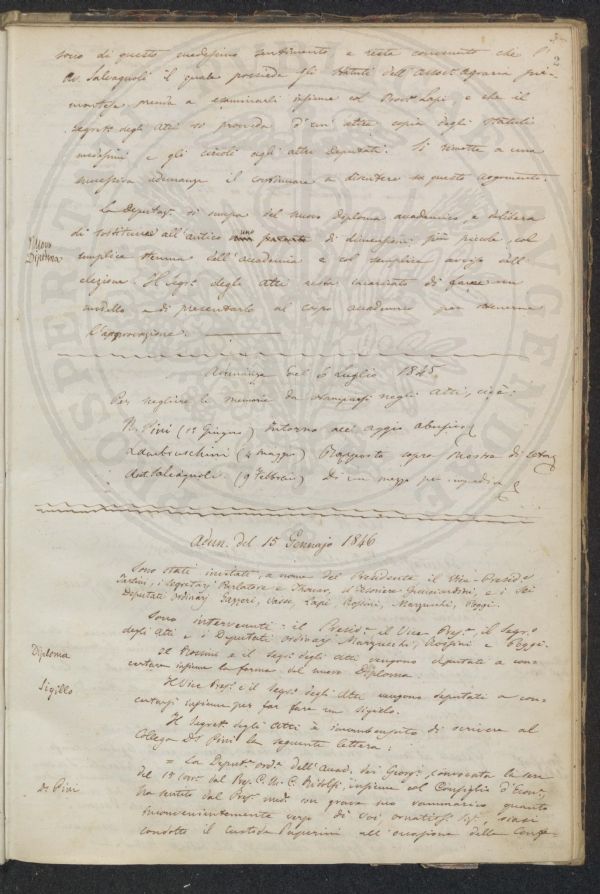 2
sono di questo medesimo sentimento e resta convenuto che l'
Av. Salvagnoli il quale possiede gli statuti dell'Assoc. agraria pie-
montese prenda a esaminarli insieme col Prof. Lapi e che il
Segret. degli Atti si proveda d'un'altra copia degli statuti
medesimi e gli circoli agli altri Deputati. Si rimette a una
successiva adunanza il continuare a discutere su questo argomento.
Nuovo
Diploma
La Deputaz. si occupa del nuovo Diploma accademico, e delibera
di sostituire all'antico uno di dimensioni più piccole, col
semplice stemma dell'accademia e col semplice avviso dell'
elezione. Il Segr. degli Atti resta incaricato di farne un
modello e di presentarlo al corpo accademico per ottenerne
l'approvazione.
Adunanza del 6 Luglio 1845
Per scegliere le memorie da stamparsi negli Atti, cioè:
R. Pini (1º Giugno) Intorno all'aggio abusivo
Lambruschini (4 maggio) Rapporto sopra Mostra di
Ant. Salvagnoli (9 Febbraio) Di un mezzo per impedire
Adun. del 15 Gennajo 1846
Sono stati invitati, a nome del Presidente il Vice-Presid.e
i Segretarj Parlatore e Thouar, il Tesoriere Guicciardini, e i Sei
Deputati ordinarj Gazzeri, Lapi, Rossini, Marzucchi, Poggi.
Sono intervenuti: il Presid.e, il Vice Pres.e, il Segr.o
degli Atti e i Deputati ordinarj Marzucchi, Rossini e Poggi.
Diploma
Il Rossini e il Segr. degli Atti vengono deputati a con-
certare insieme la forma del nuovo Diploma.
Sigillo
Il Vice Pres. e il Segr. degli Atti vengono deputati a con-
certarsi insieme per far fare un sigillo.
Il Segret. degli Atti è incombensato di scrivere al
Collega Dr. Pini la seguente lettera:
Dr. Pini
= La Deput. ord. dell'Accad. dei Georg. convocata la sera
del 15 corr. dal Pres. C. M. C. Ridolfi, insieme col Consiglio d'Econ.,
ha sentito dal Pres. med. con grave suo rammarico quanto
inconvenientemente verso di Voi, ornatiss. Sig., siasi
condotto il custode Puperini all'occasione della